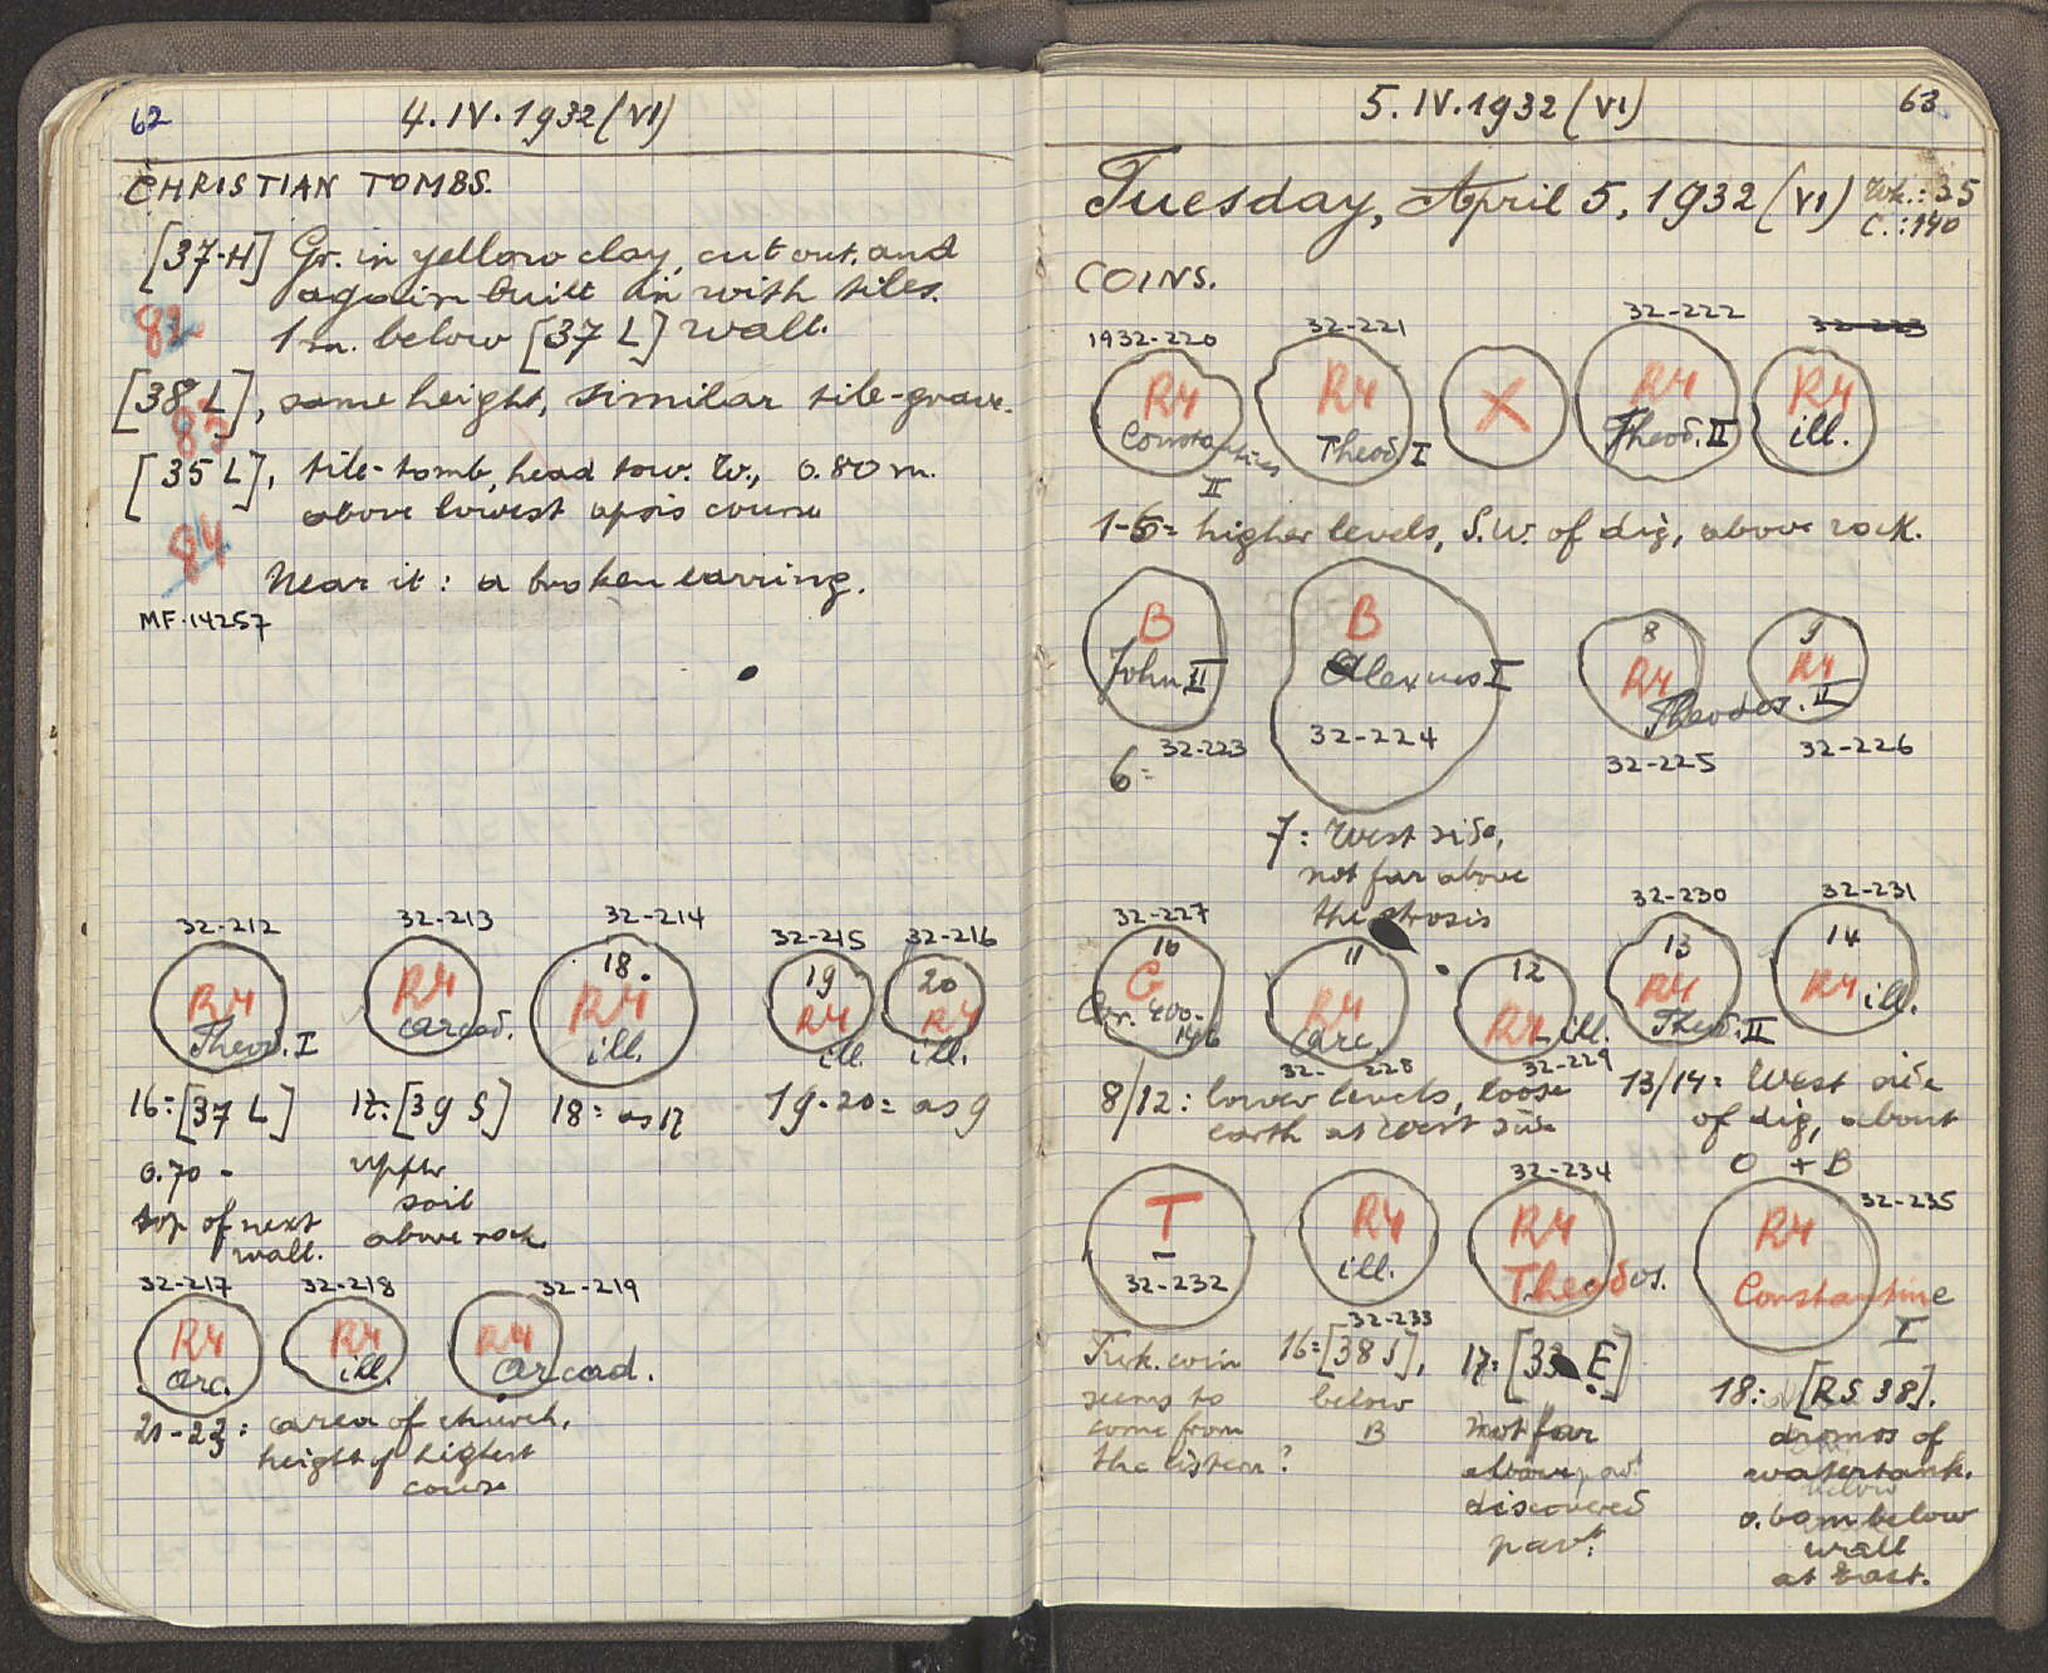 62
4.IV.1932 (VI)
CHRISTIAN TOMBS.
[37-H] Gr. in yellow clay, cut out, and
again built in with tiles.
82
1 m. below [37 L] wall.
[38 L], same height, similar tile-grave.
83
[35 L], tile-tomb, head tow. W., 0.80 m.
above lowest apsis course
84
Near it: a broken earring.
MF-14257
32-212 32-213 32-214 32-215 32-216
R4 Theod. I
R4 Arcad.
18. R4 ill.
19 R4 ill.
20 R4 ill.
16:[37 L] 17:[39 S] 18: as 17 19-20= as 9
0.70 -
top of next
wall.
upper
soil
above rock.
32-217 32-218 32-219
R4 Arc.
R4 ill.
R4 Arcad.
21-23: area of church,
height of highest
course
5.IV.1932 (VI)
63
Tuesday, April 5, 1932 (VI)
Wk.: 35
C.: 140
COINS.
1932-220 32-221 32-222 32-223
R4 Constantius II
R4 Theod. I
X
R4 Theod. II
R4 ill.
1-5= higher levels, S.W. of dig, above rock.
B John II
B Alexius I
32-224
8 R4
9 R4
Theodos. II
32-223
32-225
32-226
6=
7: West side,
not far above
the
32-227 32-230 32-231
10 G Cor. 400-146
11 R4 Arc.
12 R4 ill.
13 R4 Theod. II
14 R4 ill.
32- 228
32-229
8/12: lower levels, loose
earth at West side
13/14= West side
of dig, about
O + B
T
32-232
R4 ill.
32-233
32-234
R4 Theodos.
32-235
R4 Constantine I
Turk. coin
seems to
come from
the cistern?
16=[38 S],
below
B
17: [33 E]
not far
above
discovered
part.
18: [RS 38].
dromos of
watertank.
0.60m below
wall
at East.